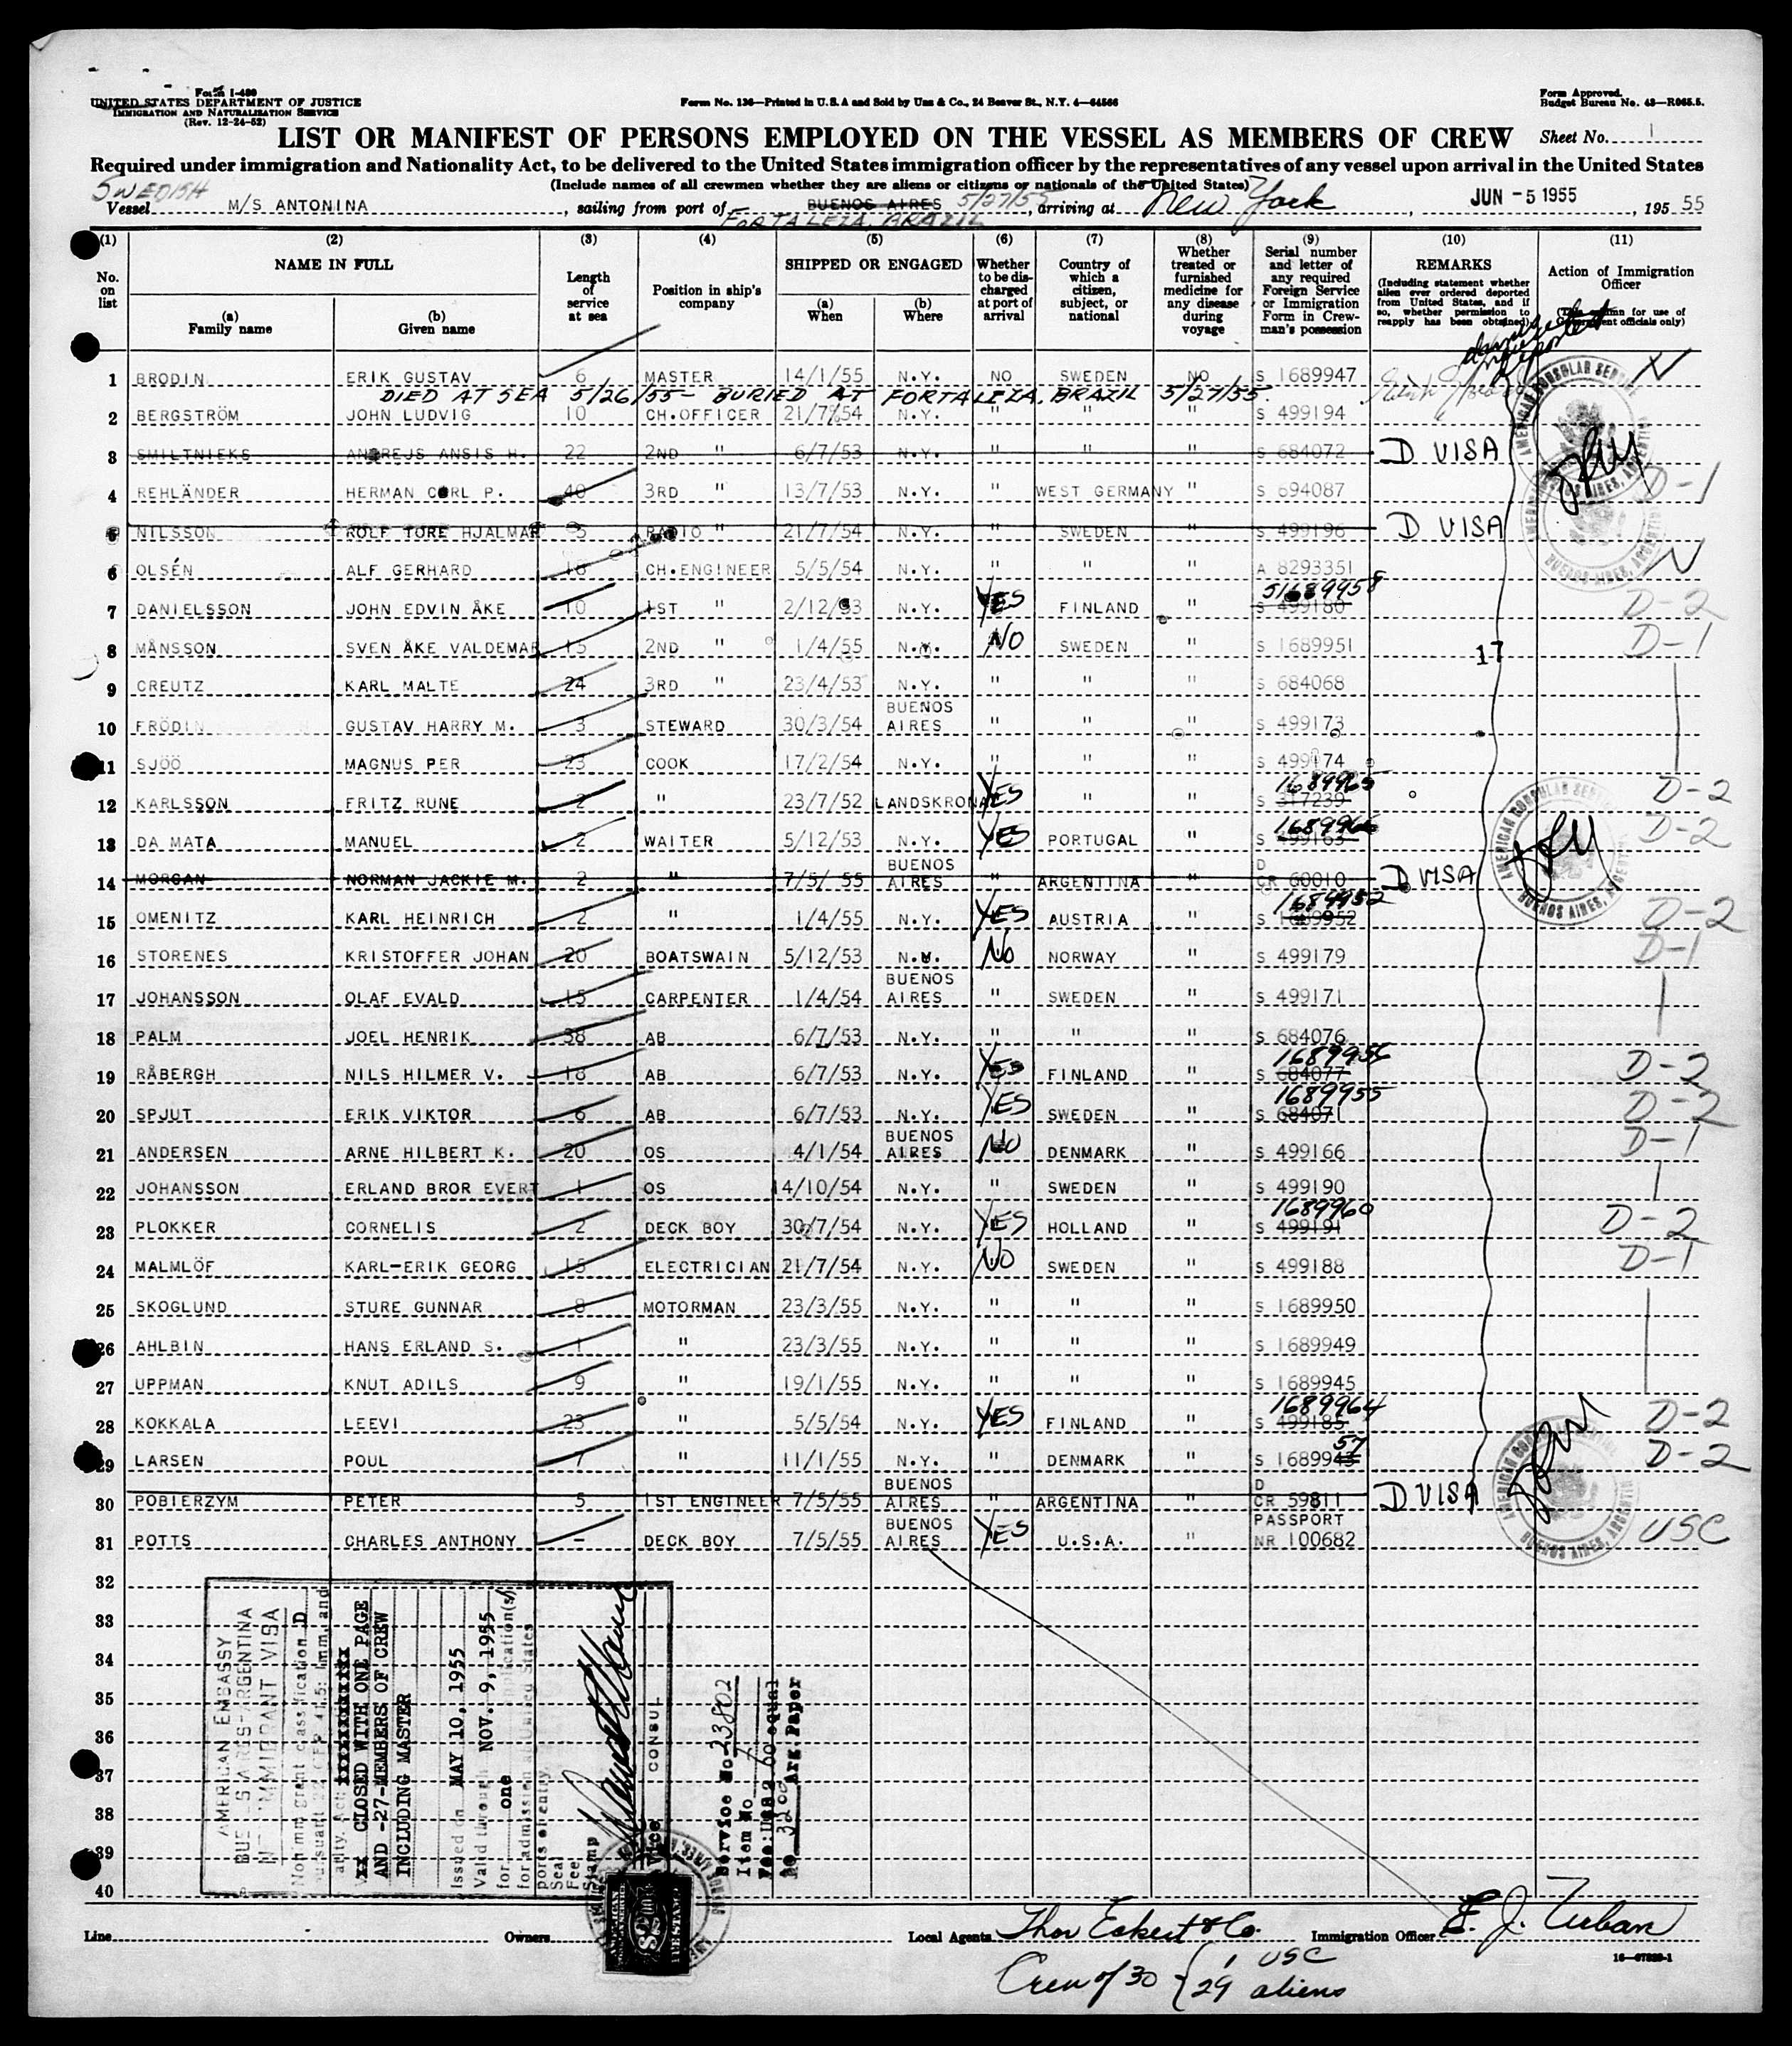 Form I-489
UNITED STATES DEPARTMENT OF JUSTICE
IMMIGRATION AND NATURALIZATION SERVICE
(Rev. 12-24-52)
Form No. 136—Printed in U.S.A and Sold by Unz & Co., 24 Beaver St., N.Y. 4—64566
Form Approved.
Budget Bureau No. 43—R065.5.
LIST OR MANIFEST OF PERSONS EMPLOYED ON THE VESSEL AS MEMBERS OF CREW
Sheet No. 1
Required under immigration and Nationality Act, to be delivered to the United States immigration officer by the representatives of any vessel upon arrival in the United States
(Include names of all crewmen whether they are aliens or citizens or nationals of the United States)
SWEDISH
Vessel M/S ANTONINA, sailing from port of BUENOS AIRES 5/27/55, arriving at New York, JUN -5 1955, 195 55
FORTALEZA, BRAZIL
(1) (2) (3) (4) (5) (6) (7) (8) (9) (10) (11)
No. on list
NAME IN FULL
(a) Family name
(b) Given name
Length of service at sea
Position in ship's company
SHIPPED OR ENGAGED
(a) When
(b) Where
Whether to be discharged at port of arrival
Country of which a citizen, subject, or national
Whether treated or furnished medicine for any disease during voyage
Serial number and letter of any required Foreign Service or Immigration Form in Crewman's possession
REMARKS
(Including statement whether alien ever ordered deported from United States, and if so, whether permission to reapply has been obtained)
Action of Immigration Officer
(This column for use of Government officials only)
1 BRODIN ERIK GUSTAV 6 MASTER 14/1/55 N.Y. NO SWEDEN NO S 1689947 N
DIED AT SEA 5/26/55 - BURIED AT FORTALEZA, BRAZIL 5/27/55.
2 BERGSTRÖM JOHN LUDVIG 10 CH.OFFICER 21/7/54 N.Y. " " " S 499194
3 SMILTNIEKS ANDREJS ANSIS H. 22 2ND " 6/7/53 N.Y. " " " S 684072 D VISA
4 REHLÄNDER HERMAN CARL P. 40 3RD " 13/7/53 N.Y. " WEST GERMANY " S 694087 D-1
5 NILSSON ROLF TORE HJALMAR 5 RADIO " 21/7/54 N.Y. " SWEDEN " S 499196 D VISA
6 OLSÉN ALF GERHARD 18 CH.ENGINEER 5/5/54 N.Y. " " " A 8293351 N
S1689958
7 DANIELSSON JOHN EDVIN ÅKE 10 1ST " 2/12/53 N.Y. YES FINLAND " S 499180 D-2
8 MÅNSSON SVEN ÅKE VALDEMAR 15 2ND " 1/4/55 N.Y. NO SWEDEN " S 1689951 17 D-1
9 CREUTZ KARL MALTE 24 3RD " 23/4/53 N.Y. " " " S 684068
10 FRÖDIN GUSTAV HARRY M. 3 STEWARD 30/3/54 BUENOS AIRES " " " S 499173
11 SJÖÖ MAGNUS PER 23 COOK 17/2/54 N.Y. " " " S 499174
1689965
12 KARLSSON FRITZ RUNE 2 " 23/7/52 LANDSKRONA YES " " S 317239 D-2
1689966
13 DA MATA MANUEL 2 WAITER 5/12/53 N.Y. YES PORTUGAL " S 499163 D-2
14 MORGAN NORMAN JACKIE M. 2 " 7/5/55 BUENOS AIRES " ARGENTINA " D CR 60010 D VISA
1689952
15 OMENITZ KARL HEINRICH 2 " 1/4/55 N.Y. YES AUSTRIA " S 1689952 D-2
16 STORENES KRISTOFFER JOHAN 20 BOATSWAIN 5/12/53 N.Y. NO NORWAY " S 499179 D-1
17 JOHANSSON OLAF EVALD 15 CARPENTER 1/4/54 BUENOS AIRES " SWEDEN " S 499171
18 PALM JOEL HENRIK 38 AB 6/7/53 N.Y. " " " S 684076
1689956
19 RÅBERGH NILS HILMER V. 18 AB 6/7/53 N.Y. YES FINLAND " S 684077 D-2
1689955
20 SPJUT ERIK VIKTOR 6 AB 6/7/53 N.Y. YES SWEDEN " S 684071 D-2
21 ANDERSEN ARNE HILBERT K. 20 OS 4/1/54 BUENOS AIRES NO DENMARK " S 499166 D-1
22 JOHANSSON ERLAND BROR EVERT 1 OS 14/10/54 N.Y. " SWEDEN " S 499190
1689960
23 PLOKKER CORNELIS 2 DECK BOY 30/7/54 N.Y. YES HOLLAND " S 499191 D-2
24 MALMLÖF KARL-ERIK GEORG 15 ELECTRICIAN 21/7/54 N.Y. NO SWEDEN " S 499188 D-1
25 SKOGLUND STURE GUNNAR 8 MOTORMAN 23/3/55 N.Y. " " " S 1689950
26 AHLBIN HANS ERLAND S. 1 " 23/3/55 N.Y. " " " S 1689949
27 UPPMAN KNUT ADILS 9 " 19/1/55 N.Y. " " " S 1689945
1689964
28 KOKKALA LEEVI 23 " 5/5/54 N.Y. YES FINLAND " S 499185 D-2
57
29 LARSEN POUL 7 " 11/1/55 N.Y. DENMARK " S 1689943 D-2
30 POBIERZYM PETER 5 1ST ENGINEER 7/5/55 BUENOS AIRES " ARGENTINA " D CR 59811 D VISA
31 POTTS CHARLES ANTHONY - DECK BOY 7/5/55 BUENOS AIRES YES U.S.A. " PASSPORT NR 100682 USC
32
33
34
35
36
37
38
39
40
AMERICAN CONSULAR SERVICE
BUENOS AIRES, ARGENTINA
AMERICAN EMBASSY
BUENOS AIRES-ARGENTINA
NONIMMIGRANT VISA
Nonimmigrant classification D
CLOSED WITH ONE PAGE
AND -27-MEMBERS OF CREW
INCLUDING MASTER
Issued on MAY 10, 1955
Valid through NOV. 9, 1955
for one application(s)
for admission at United States
ports of entry.
Seal
Fee
Stamp
Vice CONSUL
Service No 23802
Item No 7
Fee: U.S.$ 2.00 equal
Arg. Paper
Line
Owners
Local Agents Thor Eckert & Co.
Immigration Officer E. J. Turban
Crew of 30 { 1 USC
29 aliens
16—67839-1